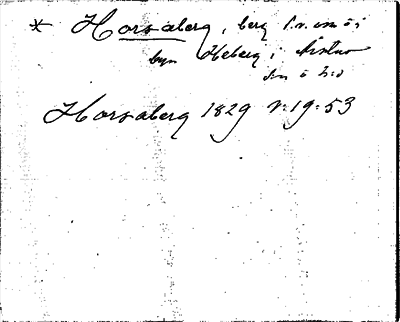 * Horsaberg, berg s.v. om ö i
byn Heberg i Årstad
sn o h:d
Horsaberg 1829 r:19:53